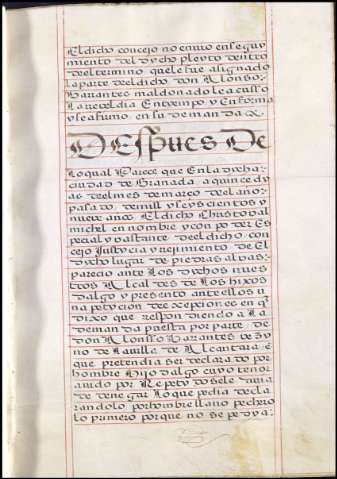 El dicho concejo no enuio en seguy
miento del dycho pleyto dentro
del termino que le fue asignado
la parte del dicho don Alonso
Barantes maldonado le acusso
la rebeldia En tyempo y En forma
y se afirmo en su demanda &
DEspues De
lo qual Parece que En la dycha
ciudad de Granada a quince dy
as del mes de março del año
pasado de mill y seyscientos y
nueve años El dicho christoval
michel en nombre y con poder Es
pecial y bastante del dicho con
cejo Justycia y rejimiento de El
dycho lugar de piedras albas
parecio ante Los dychos nues
tros Alcaldes de Los hixos
dalgo y presento ante ellos u
na petycion de excepciones en q
dixo que respondiendo a La
demanda puesta por parte de
don Alonsso Barantes bezy
no de La villa de Alcantara E
que pretendia ser declarado por
hombre Hijo dalgo cuyo tenor
auido por Repetydo se le auia
de denegar Lo que pedia decla
randolo por hombre llano pechero
lo primero porque no se pedya